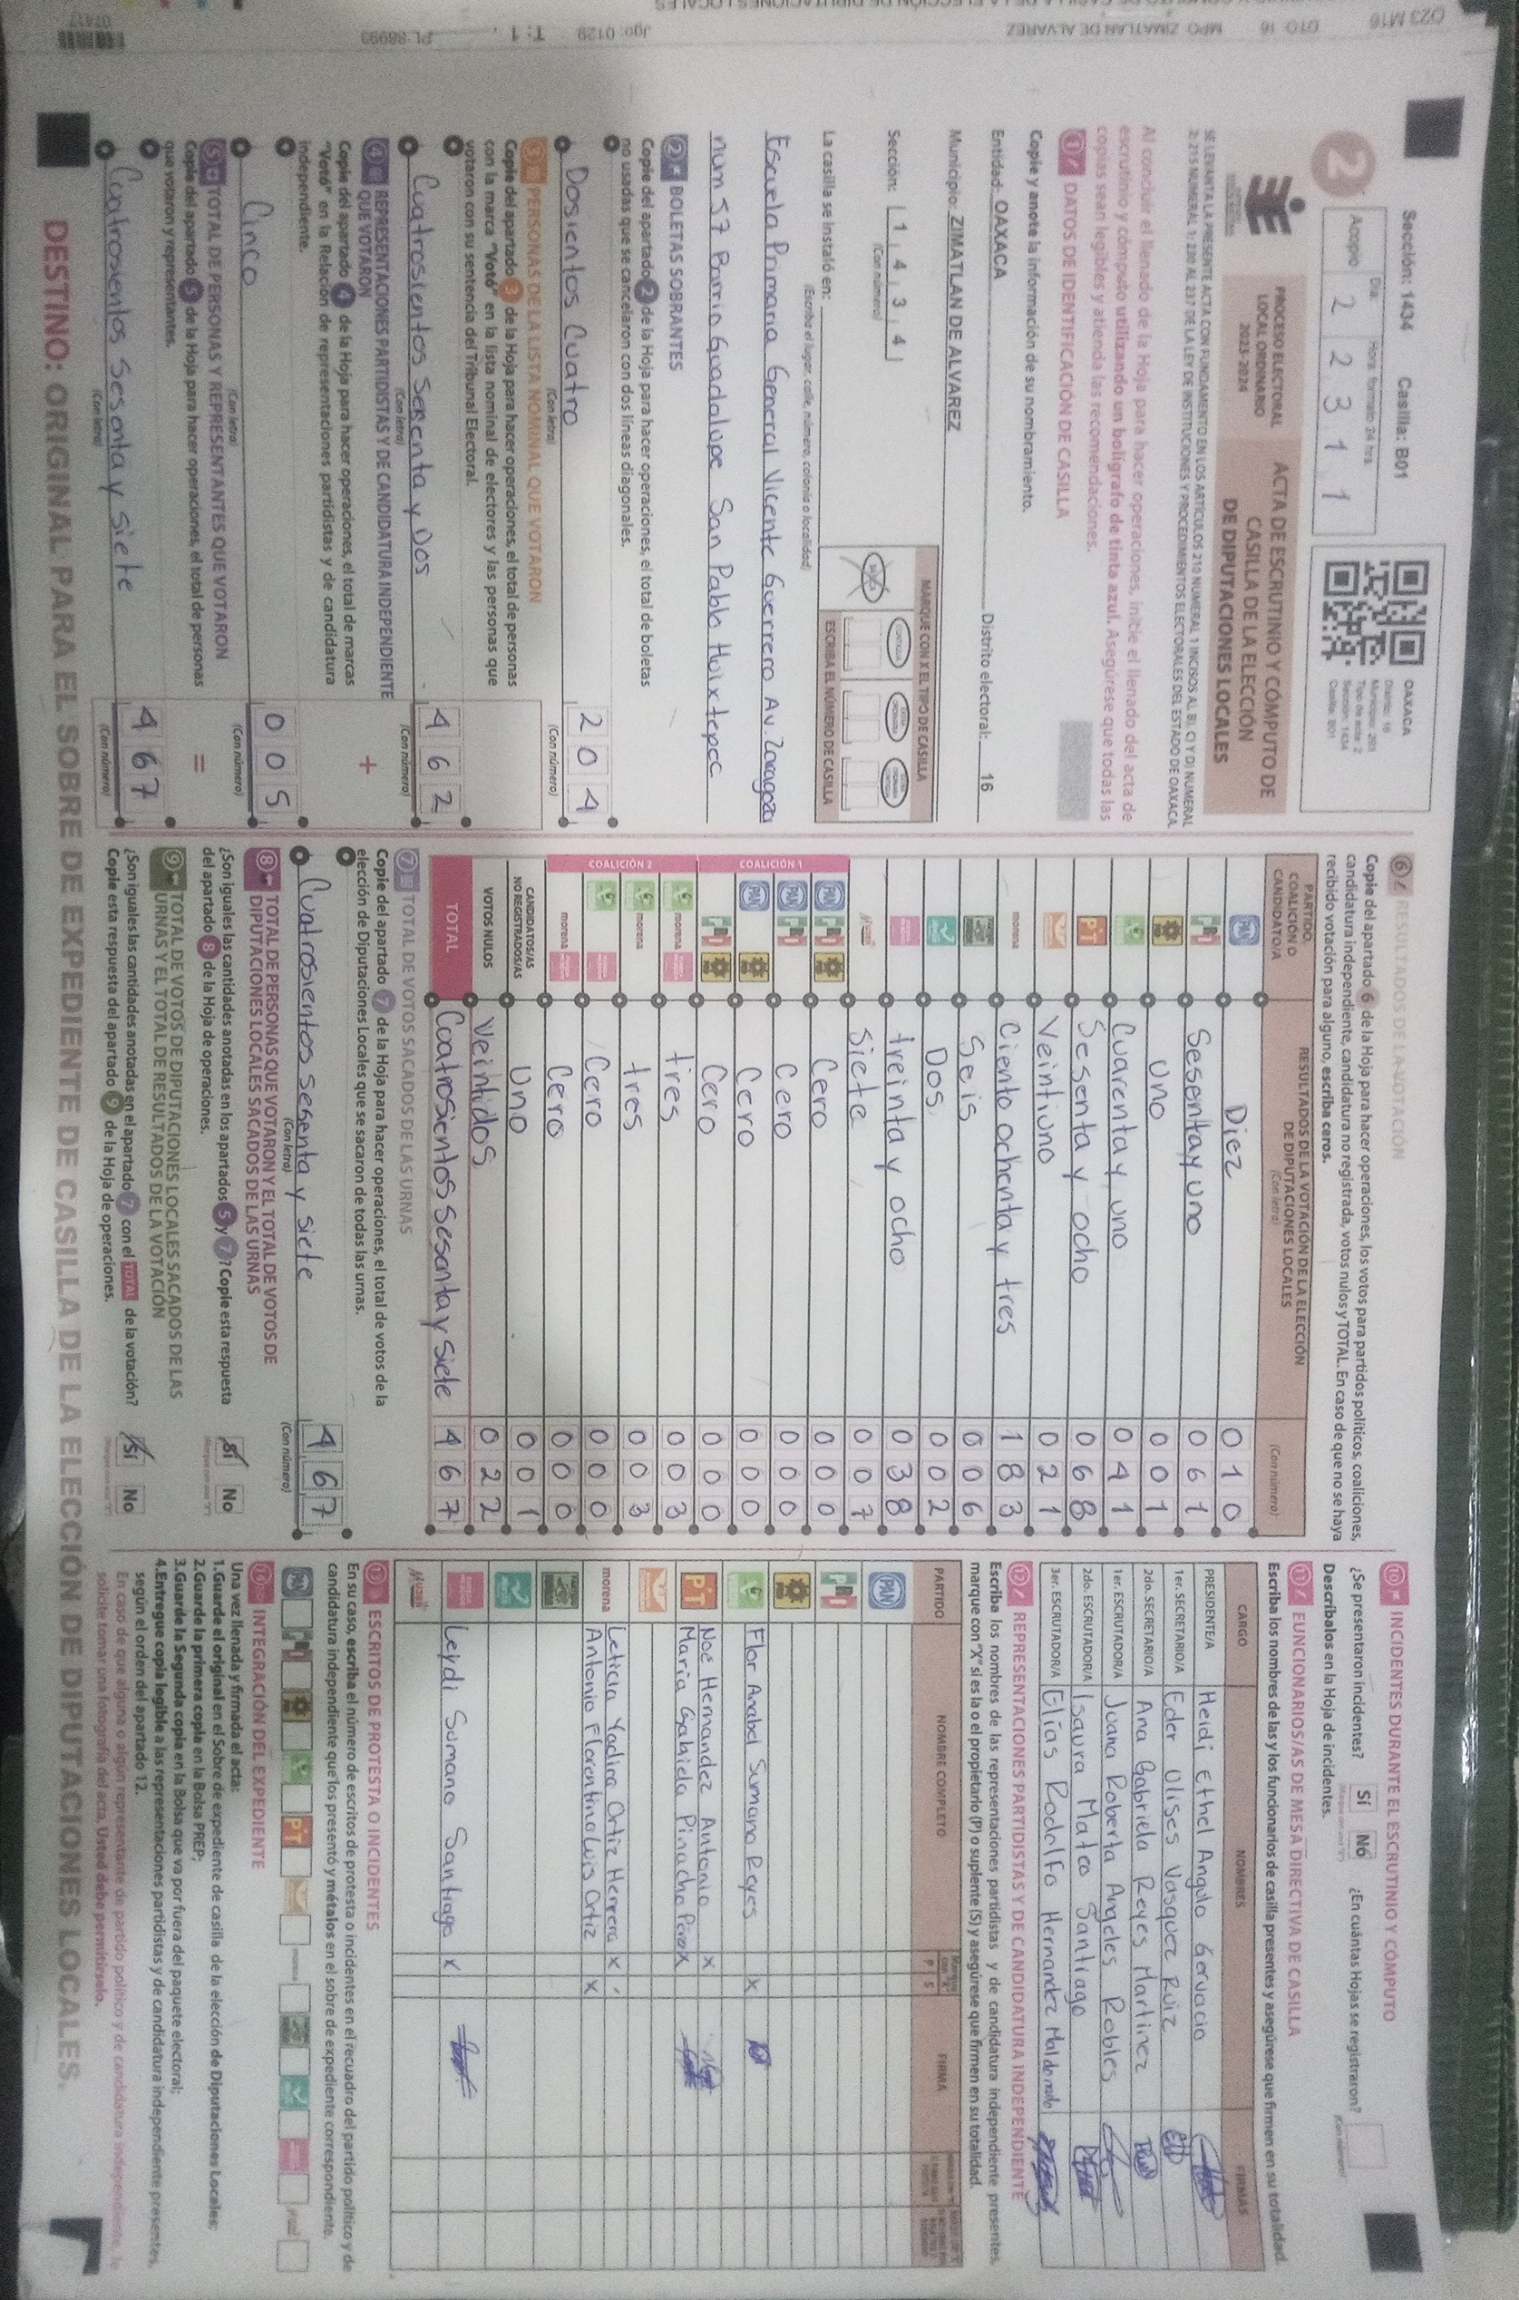 Sección: 1434 Casilla: B01
Día: Hora: formato 24 hrs
Acopio 2 2 2 3 1 1
2
OAXACA
Distrito: 16
Municipio: 203
Tipo de acta: 2
Sección: 1434
Casilla: B01
PROCESO ELECTORAL
LOCAL ORDINARIO
2023-2024
ACTA DE ESCRUTINIO Y CÓMPUTO DE
CASILLA DE LA ELECCIÓN
DE DIPUTACIONES LOCALES
Al concluir el llenado de la Hoja para hacer operaciones, inicie el llenado del acta de
escrutinio y cómputo utilizando un bolígrafo de tinta azul. Asegúrese que todas las
copias sean legibles y atienda las recomendaciones.
1 DATOS DE IDENTIFICACIÓN DE CASILLA
Copie y anote la información de su nombramiento.
Entidad: OAXACA Distrito electoral: 16
Municipio: ZIMATLAN DE ALVAREZ
Sección: 1 4 3 4
(Con número)
MARQUE CON X EL TIPO DE CASILLA
ESCRIBA EL NÚMERO DE CASILLA
La casilla se instaló en:
(Escriba el lugar, calle, número, colonia o localidad)
Escuela Primaria General Vicente Guerrero Av. Zaragoza
num 57 Barrio Guadalupe San Pablo Huixtepec
2 BOLETAS SOBRANTES
Copie del apartado 2 de la Hoja para hacer operaciones, el total de boletas
no usadas que se cancelaron con dos líneas diagonales.
Dosientos Cuatro 204
(Con letra) (Con número)
3 PERSONAS DE LA LISTA NOMINAL QUE VOTARON
Copie del apartado 3 de la Hoja para hacer operaciones, el total de personas
con la marca "Votó" en la lista nominal de electores y las personas que
votaron con su sentencia del Tribunal Electoral.
Cuatrosientos Sesenta y Dos 462
(Con letra) (Con número)
4 REPRESENTACIONES PARTIDISTAS Y DE CANDIDATURA INDEPENDIENTE
QUE VOTARON
+
Copie del apartado 4 de la Hoja para hacer operaciones, el total de marcas
"Votó" en la Relación de representaciones partidistas y de candidatura
independiente.
Cinco 005
(Con letra) (Con número)
5 TOTAL DE PERSONAS Y REPRESENTANTES QUE VOTARON
=
Copie del apartado 5 de la Hoja para hacer operaciones, el total de personas
que votaron y representantes.
Cuatrosientos Sesenta y siete 467
(Con letra) (Con número)
6 RESULTADOS DE LA VOTACIÓN
Copie del apartado 6 de la Hoja para hacer operaciones, los votos para partidos políticos, coaliciones,
candidatura independiente, candidatura no registrada, votos nulos y TOTAL. En caso de que no se haya
recibido votación para alguno, escriba ceros.
PARTIDO, COALICIÓN O CANDIDATO/A
RESULTADOS DE LA VOTACIÓN DE LA ELECCIÓN DE DIPUTACIONES LOCALES
(Con letra) (Con número)
PAN Diez 010
Sesenta y uno 061
Uno 001
Cuarenta y uno 041
PT Sesenta y ocho 068
Veintiuno 021
morena Ciento ochenta y tres 183
Seis 006
Dos 002
treinta y ocho 038
Siete 007
COALICIÓN 1
PAN Cero 000
PAN Cero 000
PAN Cero 000
Cero 000
COALICIÓN 2
morena tres 003
morena tres 003
Cero 000
morena Cero 000
CANDIDATOS/AS
NO REGISTRADOS/AS Uno 001
VOTOS NULOS Veintidos 022
TOTAL Coatrosientos sesenta y siete 467
7 TOTAL DE VOTOS SACADOS DE LAS URNAS
Copie del apartado 7 de la Hoja para hacer operaciones, el total de votos de la
elección de Diputaciones Locales que se sacaron de todas las urnas.
Cuatrosientos sesenta y siete 467
(Con letra) (Con número)
8 TOTAL DE PERSONAS QUE VOTARON Y EL TOTAL DE VOTOS DE
DIPUTACIONES LOCALES SACADOS DE LAS URNAS
¿Son iguales las cantidades anotadas en los apartados 5 y 7? Copie esta respuesta
del apartado 8 de la Hoja de operaciones.
Sí No
9 TOTAL DE VOTOS DE DIPUTACIONES LOCALES SACADOS DE LAS
URNAS Y EL TOTAL DE RESULTADOS DE LA VOTACIÓN
¿Son iguales las cantidades anotadas en el apartado 7 con el TOTAL de la votación?
Copie esta respuesta del apartado 9 de la Hoja de operaciones.
Sí No
10 INCIDENTES DURANTE EL ESCRUTINIO Y CÓMPUTO
¿Se presentaron incidentes? Sí No ¿En cuántas Hojas se registraron?
Descríbalos en la Hoja de incidentes.
11 FUNCIONARIOS/AS DE MESA DIRECTIVA DE CASILLA
Escriba los nombres de las y los funcionarios de casilla presentes y asegúrese que firmen en su totalidad.
CARGO NOMBRES FIRMAS
PRESIDENTE/A Heidi Ethel Angulo Gervacio
1er. SECRETARIO/A Eder Ulises Vasquez Ruiz
2do. SECRETARIO/A Ana Gabriela Reyes Martinez
1er. ESCRUTADOR/A Juana Roberta Angeles Robles
2do. ESCRUTADOR/A Isaura Mateo Santiago
3er. ESCRUTADOR/A Elías Rodolfo Hernandez Maldonado
12 REPRESENTACIONES PARTIDISTAS Y DE CANDIDATURA INDEPENDIENTE
Escriba los nombres de las representaciones partidistas y de candidatura independiente presentes,
marque con "X" si es la o el propietario (P) o suplente (S) y asegúrese que firmen en su totalidad.
PARTIDO NOMBRE COMPLETO P S FIRMA
PAN
Flor Anabel Sumano Reyes X
PT Noé Hernandez Antonio X
Maria Gabriela Pinacho Perez X
morena Leticia Yadira Ortiz Herrera X
Antonio Florentino Luis Ortiz X
Leydi Sumano Santiago X
13 ESCRITOS DE PROTESTA O INCIDENTES
En su caso, escriba el número de escritos de protesta o incidentes en el recuadro del partido político y de
candidatura independiente que los presentó y métalos en el sobre de expediente correspondiente.
PAN PT
14 INTEGRACIÓN DEL EXPEDIENTE
Una vez llenada y firmada el acta:
1.Guarde el original en el Sobre de expediente de casilla de la elección de Diputaciones Locales;
2.Guarde la primera copia en la Bolsa PREP;
3.Guarde la Segunda copia en la Bolsa que va por fuera del paquete electoral;
4.Entregue copia legible a las representaciones partidistas y de candidatura independiente presentes,
según el orden del apartado 12.
En caso de que alguna o algún representante de partido político y de candidatura independiente, le
solicite tomar una fotografía del acta, Usted debe permitírselo.
DESTINO: ORIGINAL PARA EL SOBRE DE EXPEDIENTE DE CASILLA DE LA ELECCIÓN DE DIPUTACIONES LOCALES.
O23 M16 DTO 16 MPO ZIMATLAN DE ALVAREZ Jgo: 0129 T: 1 PL-88999